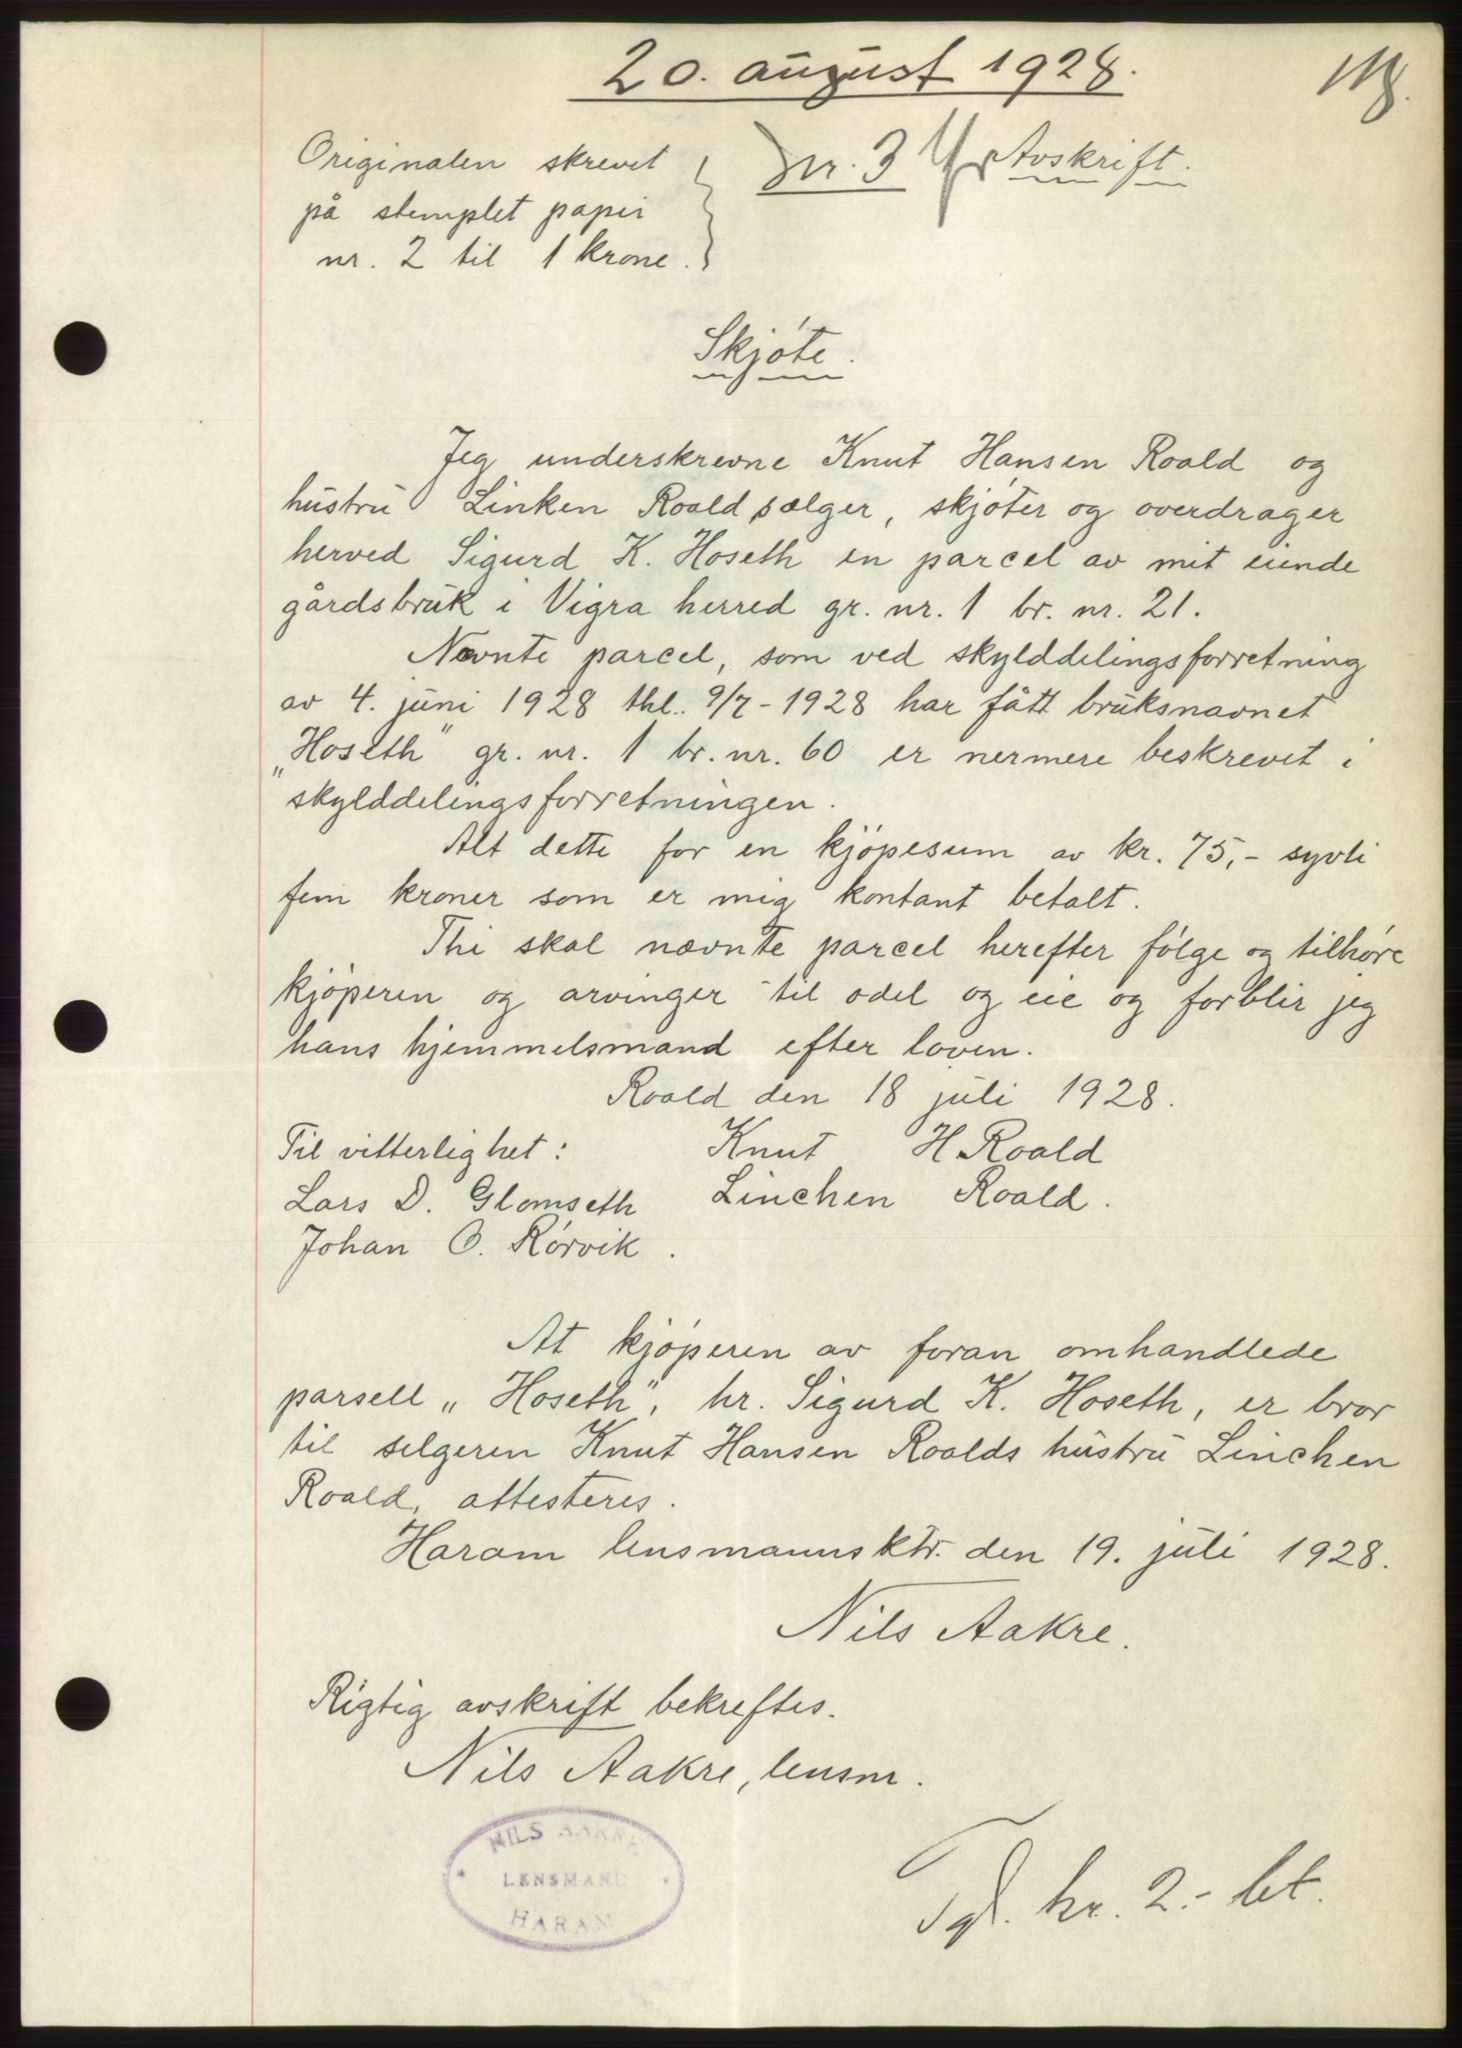 20. august 1928.
Originalen skrevet
på stemplet papir
nr. 2 til 1 krone.
nr. 3
Avskrift.
Skjøte.
Jeg underskrevne Knut Hansen Roald og
hustru Linken Roald sælger, skjøter og overdrager
herved Sigurd K. Hoseth en parcel av mit eiende
gårdsbruk i Vigra herred gr. nr. 1 br. nr. 21.
Nævnte parcel, som ved skylddelingsforretning
av 4. juni 1928 thl. 9/7-1928 har fått bruksnavnet
„Hoseth" gr. nr. 1 br. nr. 60 er nermere beskrevet i
skylddelingsforretningen.
Alt dette for en kjøpesum av kr. 75,- sytti
fem kroner som er mig kontant betalt.
Thi skal nævnte parcel herefter følge og tilhøre
kjøperen og arvinger til odel og eie og forblir jeg
hans hjemmelsmand efter loven.
Roald den 18 juli 1928.
Til vitterlighet: Knut H. Roald
Lars D. Glomseth Linchen Roald.
Johan O. Rørvik.
At kjøperen av foran omhandlede
parsell „Hoseth", hr. Sigurd K. Hoseth, er bror
til selgeren Knut Hansen Roalds hustru Linchen
Roald, attesteres.
Haram lensmannsktr. den 19. juli 1928.
Nils Aakre.
Rigtig avskrift bekreftes.
Nils Aakre, lensm.
NILS AAKRE
LENSMAND
HARAM
Tgl. kr. 2.- bet.